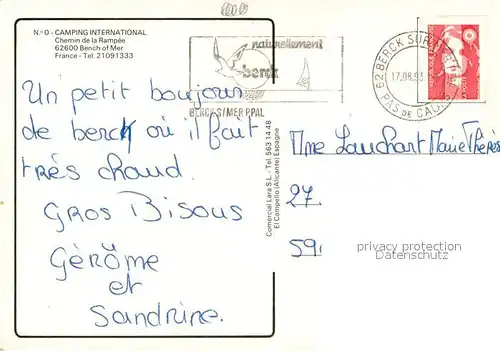 N.º 0 - CAMPING INTERNATIONAL
Chemin de la Rampée
62600 Bench of Mer
France - Tel. 21091333
naturellement
berck
BERCK S/MER PPAL
62 BERCK SUR
17.08.93
PAS DE CALAIS
Un petit boujour
de berck où il fait
très chaud.
Gros Bisous
Gèrôme
et
Sandrine.
Comercial Lara S.L. - Tel. 563 14 48
El Campello (Alicante) Espagne
Mme Lauchart Marie Thérès
27.
59.
privacy protection
Datenschutz